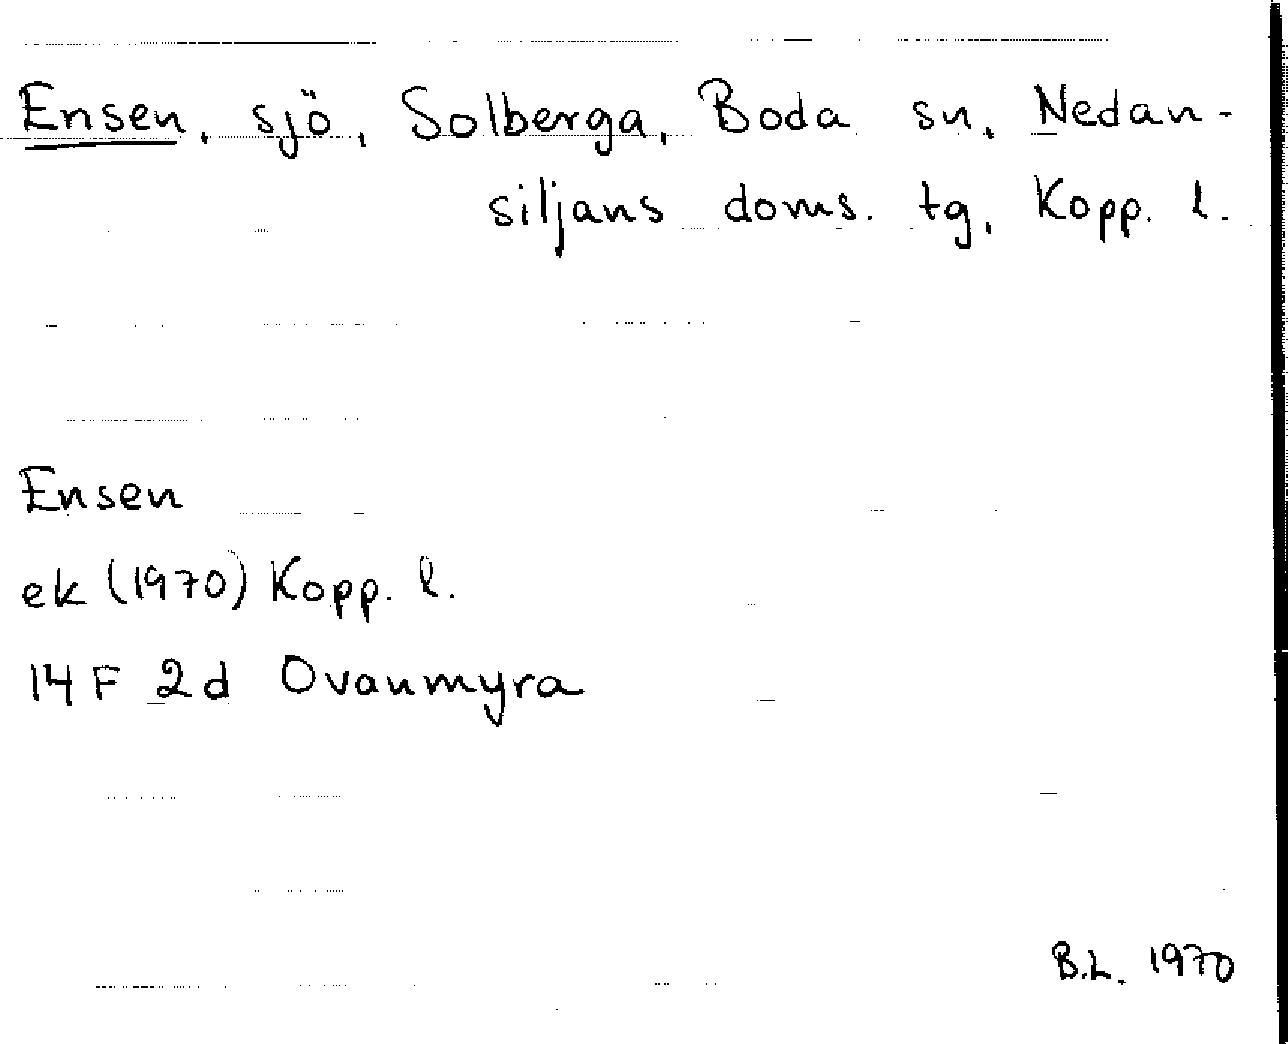 Ensen, sjö, Solberga, Boda sn, Nedan-
siljans doms. tg, Kopp. l.
Ensen
ek (1970) Kopp. l.
14 F 2d Ovanmyra
B.L. 1970